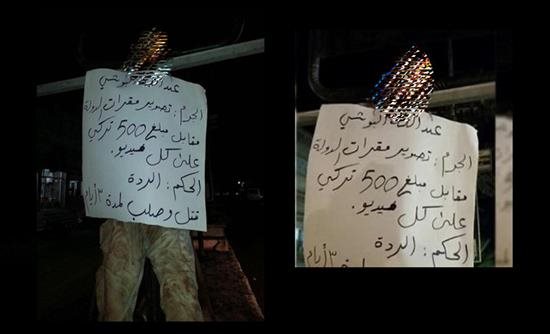 الجرم : تصوير مقرات الدولة
مقابل مبلغ 500 تركي
على كل فيديو.
الحكم : الردة
قتل وصلب لمدة ٣ أيام
الجرم : تصوير مقرات الدولة
مقابل مبلغ 500 تركي
على كل فيديو.
الحكم : الردة
٣ أيام